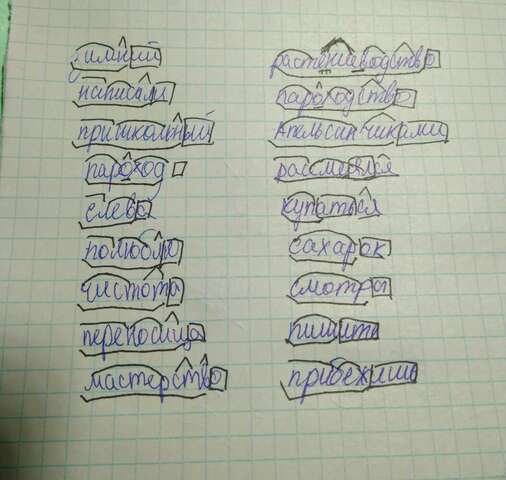 зимний
написали
пришкольный
пароход
слево
полюблю
чистота
переносица
мастерство
растениеводство
пароходство
Апельсинчиками
купаться
сахарок
прибежишь